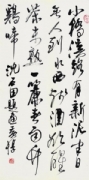 小橋溪路有新泥半日
無人到水西殘酒欲醒
茶未熟一簾春雨竹
鷄啼 沈石田題畫詩